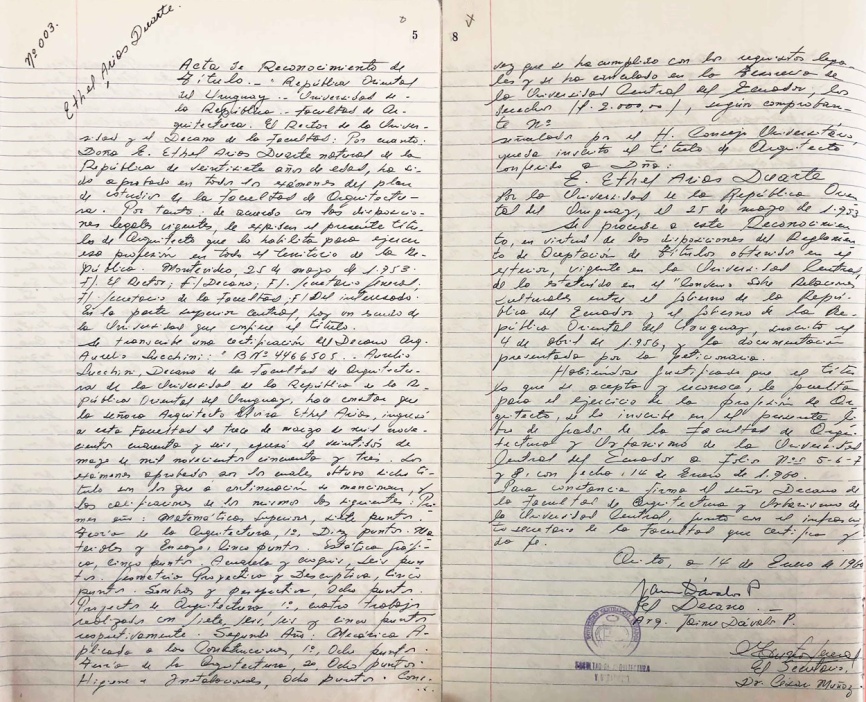 Nº 003.
Ethel Arias Duarte.
5
Acta de Reconocimiento de
Título. - "República Oriental
del Uruguay. - Universidad de
la República - Facultad de Ar-
quitectura. El Rector de la Univer-
sidad y el Decano de la Facultad: Por cuanto:
Doña E. Ethel Arias Duarte natural de la
República de veintisiete años de edad, ha si-
do aprobada en todos los exámenes del plan
de estudios de la Facultad de Arquitectu-
ra. Por tanto: de acuerdo con las disposicio-
nes legales vigentes, le expiden el presente títu-
lo de Arquitecto que lo habilita para ejercer
esa profesión en todo el territorio de la Re-
pública. Montevideo, 25 de mayo de 1.953.
f/. El Rector; f/ Decano; f/. Secretario General.
f/. Secretario de la Facultad; f/ Del interesado.
En la parte superior central, hay un escudo de
la Universidad que confiere el título.
Se transcribe una certificación del Decano Arq.
Aurelio Lucchini: "B Nº 4466505. - Aurelio
Lucchini, Decano de la Facultad de Arquitectu-
ra de la Universidad de la República de la Re-
pública Oriental del Uruguay, hace constar que
la señora Arquitecto Elvira Ethel Arias, ingresó
a esta Facultad el trece de marzo de mil nove-
cientos cuarenta y seis, egresó el veintidós de
mayo de mil novecientos cincuenta y tres. Los
exámenes aprobados con los cuales obtuvo dicho tí-
tulo son los que a continuación se mencionan, y
las calificaciones de los mismos las siguientes: Pri-
mer año: Matemáticas Superiores, siete puntos.
Teoría de la Arquitectura, 1º, Diez puntos. Ma-
teriales y Ensayos, cinco puntos. Estática Gráfi-
ca, cinco puntos. Acuarela y croquis, seis pun-
tos. Geometría Proyectiva y Descriptiva, cinco
puntos. Sombras y perspectiva, Ocho puntos.
Proyectos de Arquitectura, 1º, cuatro trabajos
realizados con siete, seis, seis y cinco puntos
respectivamente. Segundo Año: Mecánica A-
plicada a las Construcciones, 1º, Ocho puntos.
Teoría de la Arquitectura, 2º Ocho puntos.
Higiene e Instalaciones, Ocho puntos. Cons-
8
vez que se ha cumplido con los requisitos lega-
les y se ha cancelado en la Tesorería de
la Universidad Central del Ecuador, los
derechos (S/. 2.000,oo), según comproban-
te Nº
señalados por el H. Consejo Universitario,
queda inscrito el título de Arquitecto
conferido a Dña:
E. Ethel Arias Duarte
Por la Universidad de la República Orien-
tal del Uruguay, el 25 de mayo de 1.953
Se procede a este Reconocimien-
to, en virtud de las disposiciones del Reglamen-
to de Aceptación de títulos obtenidos en el
exterior, vigente en la Universidad Central,
de lo estatuido en el "Convenio Sobre Relaciones
culturales entre el Gobierno de la Repú-
blica del Ecuador y el Gobierno de la Re-
pública Oriental del Uruguay, suscrito el
4 de abril de 1.956, y la documentación
presentada por la peticionaria.
Habiéndose justificado que el títu-
lo que se acepta y reconoce, la faculta
para el ejercicio de la profesión de Ar-
quitecto, se lo inscribe en el presente li-
bro de grado de la Facultad de Arqui-
tectura y Urbanismo de la Universidad
Central del Ecuador a folios Nos: 5-6-7
y 8, con fecha 14 de Enero de 1.960.
Para constancia firma el señor Decano de
la Facultad de Arquitectura y Urbanismo de
la Universidad Central, junto con el infrascri-
to secretario de la Facultad que certifica y
da fe.
Quito, a 14 de Enero de 1960
Jaime Dávalos P
El Decano. -
Arq. Jaime Dávalos P.
FACULTAD DE ARQUITECTURA
El Secretario,
Dr. César Muñoz